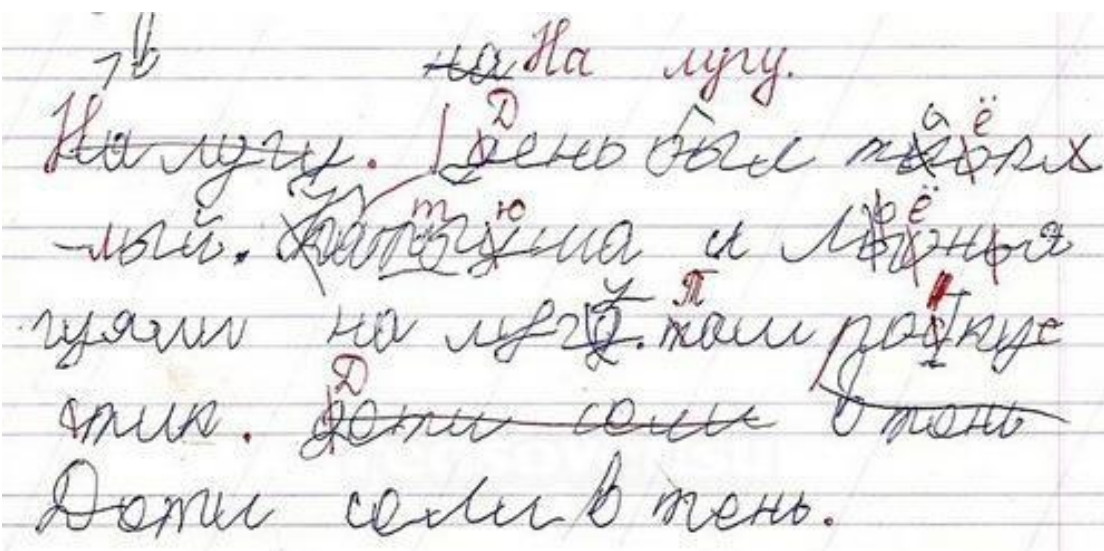 на На лугу.
На лугу. День был тёпл
-лый. Катюша и Лёня
гуяли на лугу. Там рос кус
стик. Дети сели в тень
Дети сели в тень.